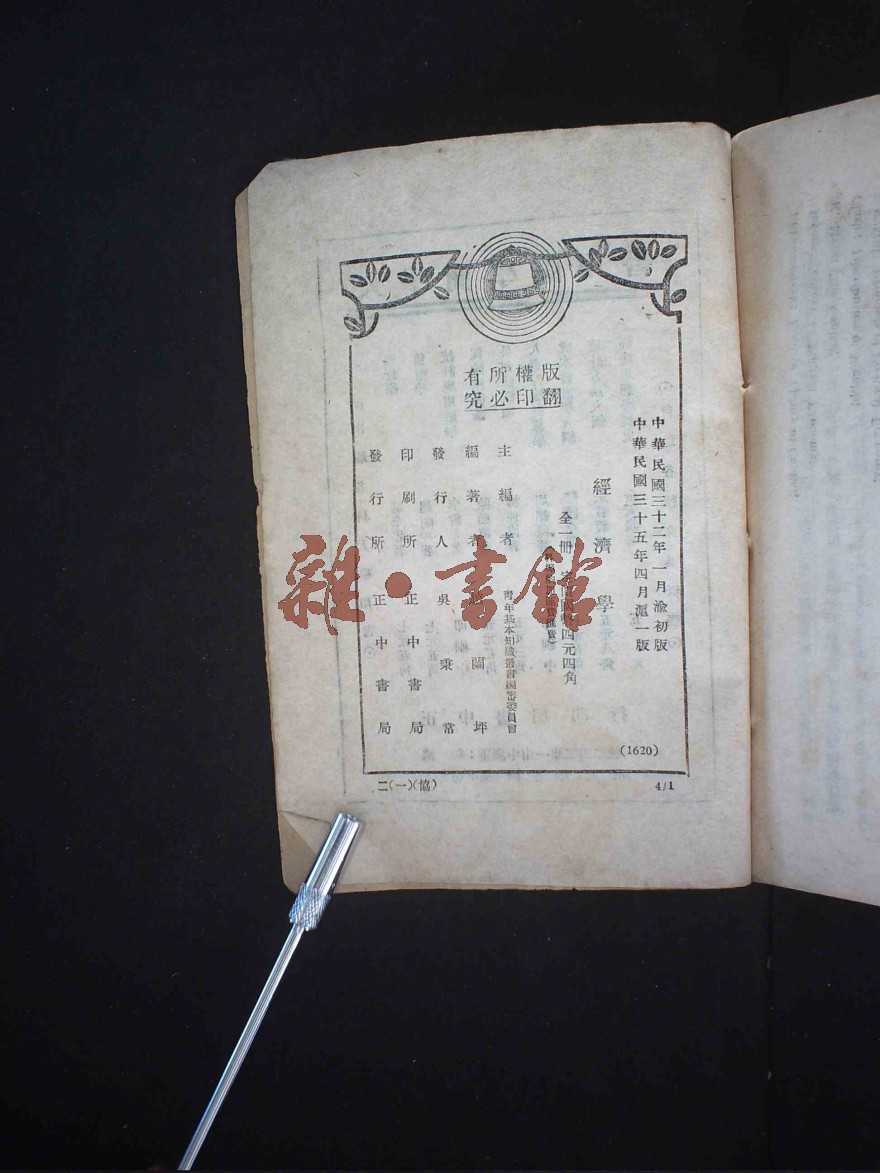 版權所有
翻印必究
中華民國三十二年一月渝初版
中華民國三十五年四月滬一版
經濟學
全一冊 定價國幣四元四角
主編者 青年基本知識叢書編審委員會
編著者 蘭坪
發行人 吳秉常
印刷所 正中書局
發行所 正中書局
(1620)
二(一)(協)
4/1
雜·書館